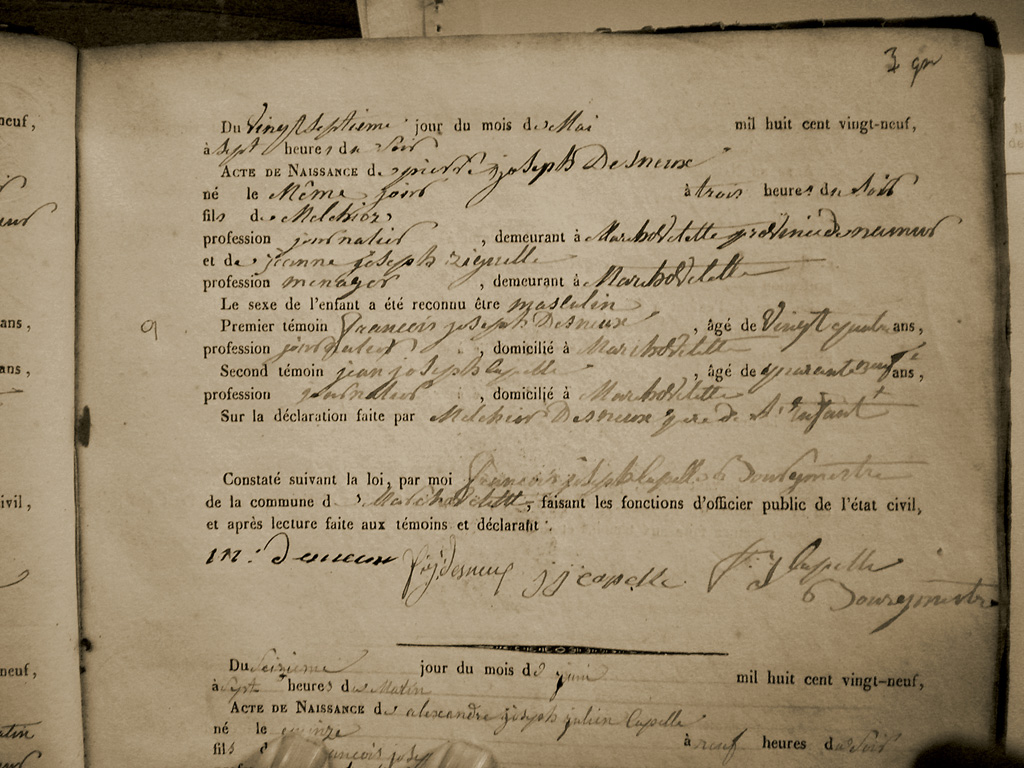 3
Du Vingt Septième jour du mois de Mai mil huit cent vingt-neuf,
à Sept heures du Soir
ACTE DE NAISSANCE de pierre joseph Desneux
né le Même jour à trois heures du Soir
fils de Melchior
profession journalier , demeurant à Marchovelette province de namur
et de jeanne joseph
profession menager , demeurant à Marchovelette
Le sexe de l'enfant a été reconnu être masculin
9 Premier témoin francois joseph Desneux , âgé de Vingt quatre ans,
profession journalier , domicilié à Marchovelette
Second témoin jean joseph Capelle , âgé de quarante neuf ans,
profession journalier , domicilié à Marchovelette
Sur la déclaration faite par Melchior Desneux pere de l'enfant
Constaté suivant la loi, par moi francois joseph Capelle Bourgmestre
de la commune de Marchovelette, faisant les fonctions d'officier public de l'état civil,
et après lecture faite aux témoins et déclarant.
m: Desneux f j Desneux j j capelle f. j Capelle
Bourgmestre
Du Seizieme jour du mois de juin mil huit cent vingt-neuf,
à Sept heures du Matin
ACTE DE NAISSANCE de alexandre joseph julien Capelle
né le quinze à neuf heures du Soir
fils francois josep
neuf,
ans,
ans,
ivil,
neuf,